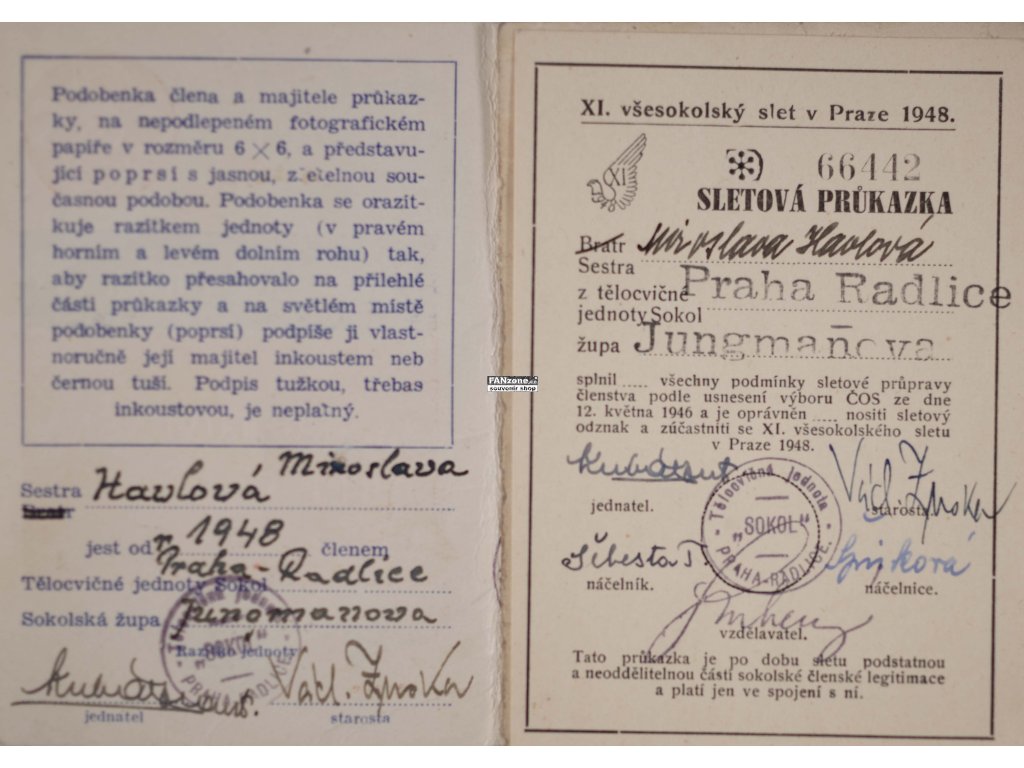 Podobenka člena a majitele průkaz-
ky, na nepodlepeném fotografickém
papíře v rozměru 6×6, a představu-
jící poprsí s jasnou, zřetelnou sou-
časnou podobou. Podobenka se orazít-
kuje razítkem jednoty (v pravém
horním a levém dolním rohu) tak,
aby razítko přesahovalo na přilehlé
části průkazky a na světlém místě
podobenky (poprsí) podpíše ji vlast-
noručně její majitel inkoustem neb
černou tuší. Podpis tužkou, třebas
inkoustovou, je neplatný.
Sestra Havlová Miroslava
jest od r. 1948 členem
Tělocvičné jednoty Sokol Praha-Radlice
Sokolská župa Jungmanova
Razítko jednoty
Tělocvičná jednota "SOKOL" PRAHA-RADLICE
jednatel
starosta
XI. všesokolský slet v Praze 1948.
XI
66442
SLETOVÁ PRŮKAZKA
Bratr Miroslava Havlová
Sestra
z tělocvičné Praha Radlice
jednoty Sokol
župa Jungmaňova
splnil ..... všechny podmínky sletové průpravy
členstva podle usnesení výboru ČOS ze dne
12. května 1946 a je oprávněn ..... nositi sletový
odznak a zúčastniti se XI. všesokolského sletu
v Praze 1948.
jednatel.
starosta.
Tělocvičná jednota "SOKOL" PRAHA-RADLICE.
náčelník.
náčelnice.
vzdělavatel.
Tato průkazka je po dobu sletu podstatnou
a neoddělitelnou částí sokolské členské legitimace
a platí jen ve spojení s ní.
FANzone.cz
souvenir shop